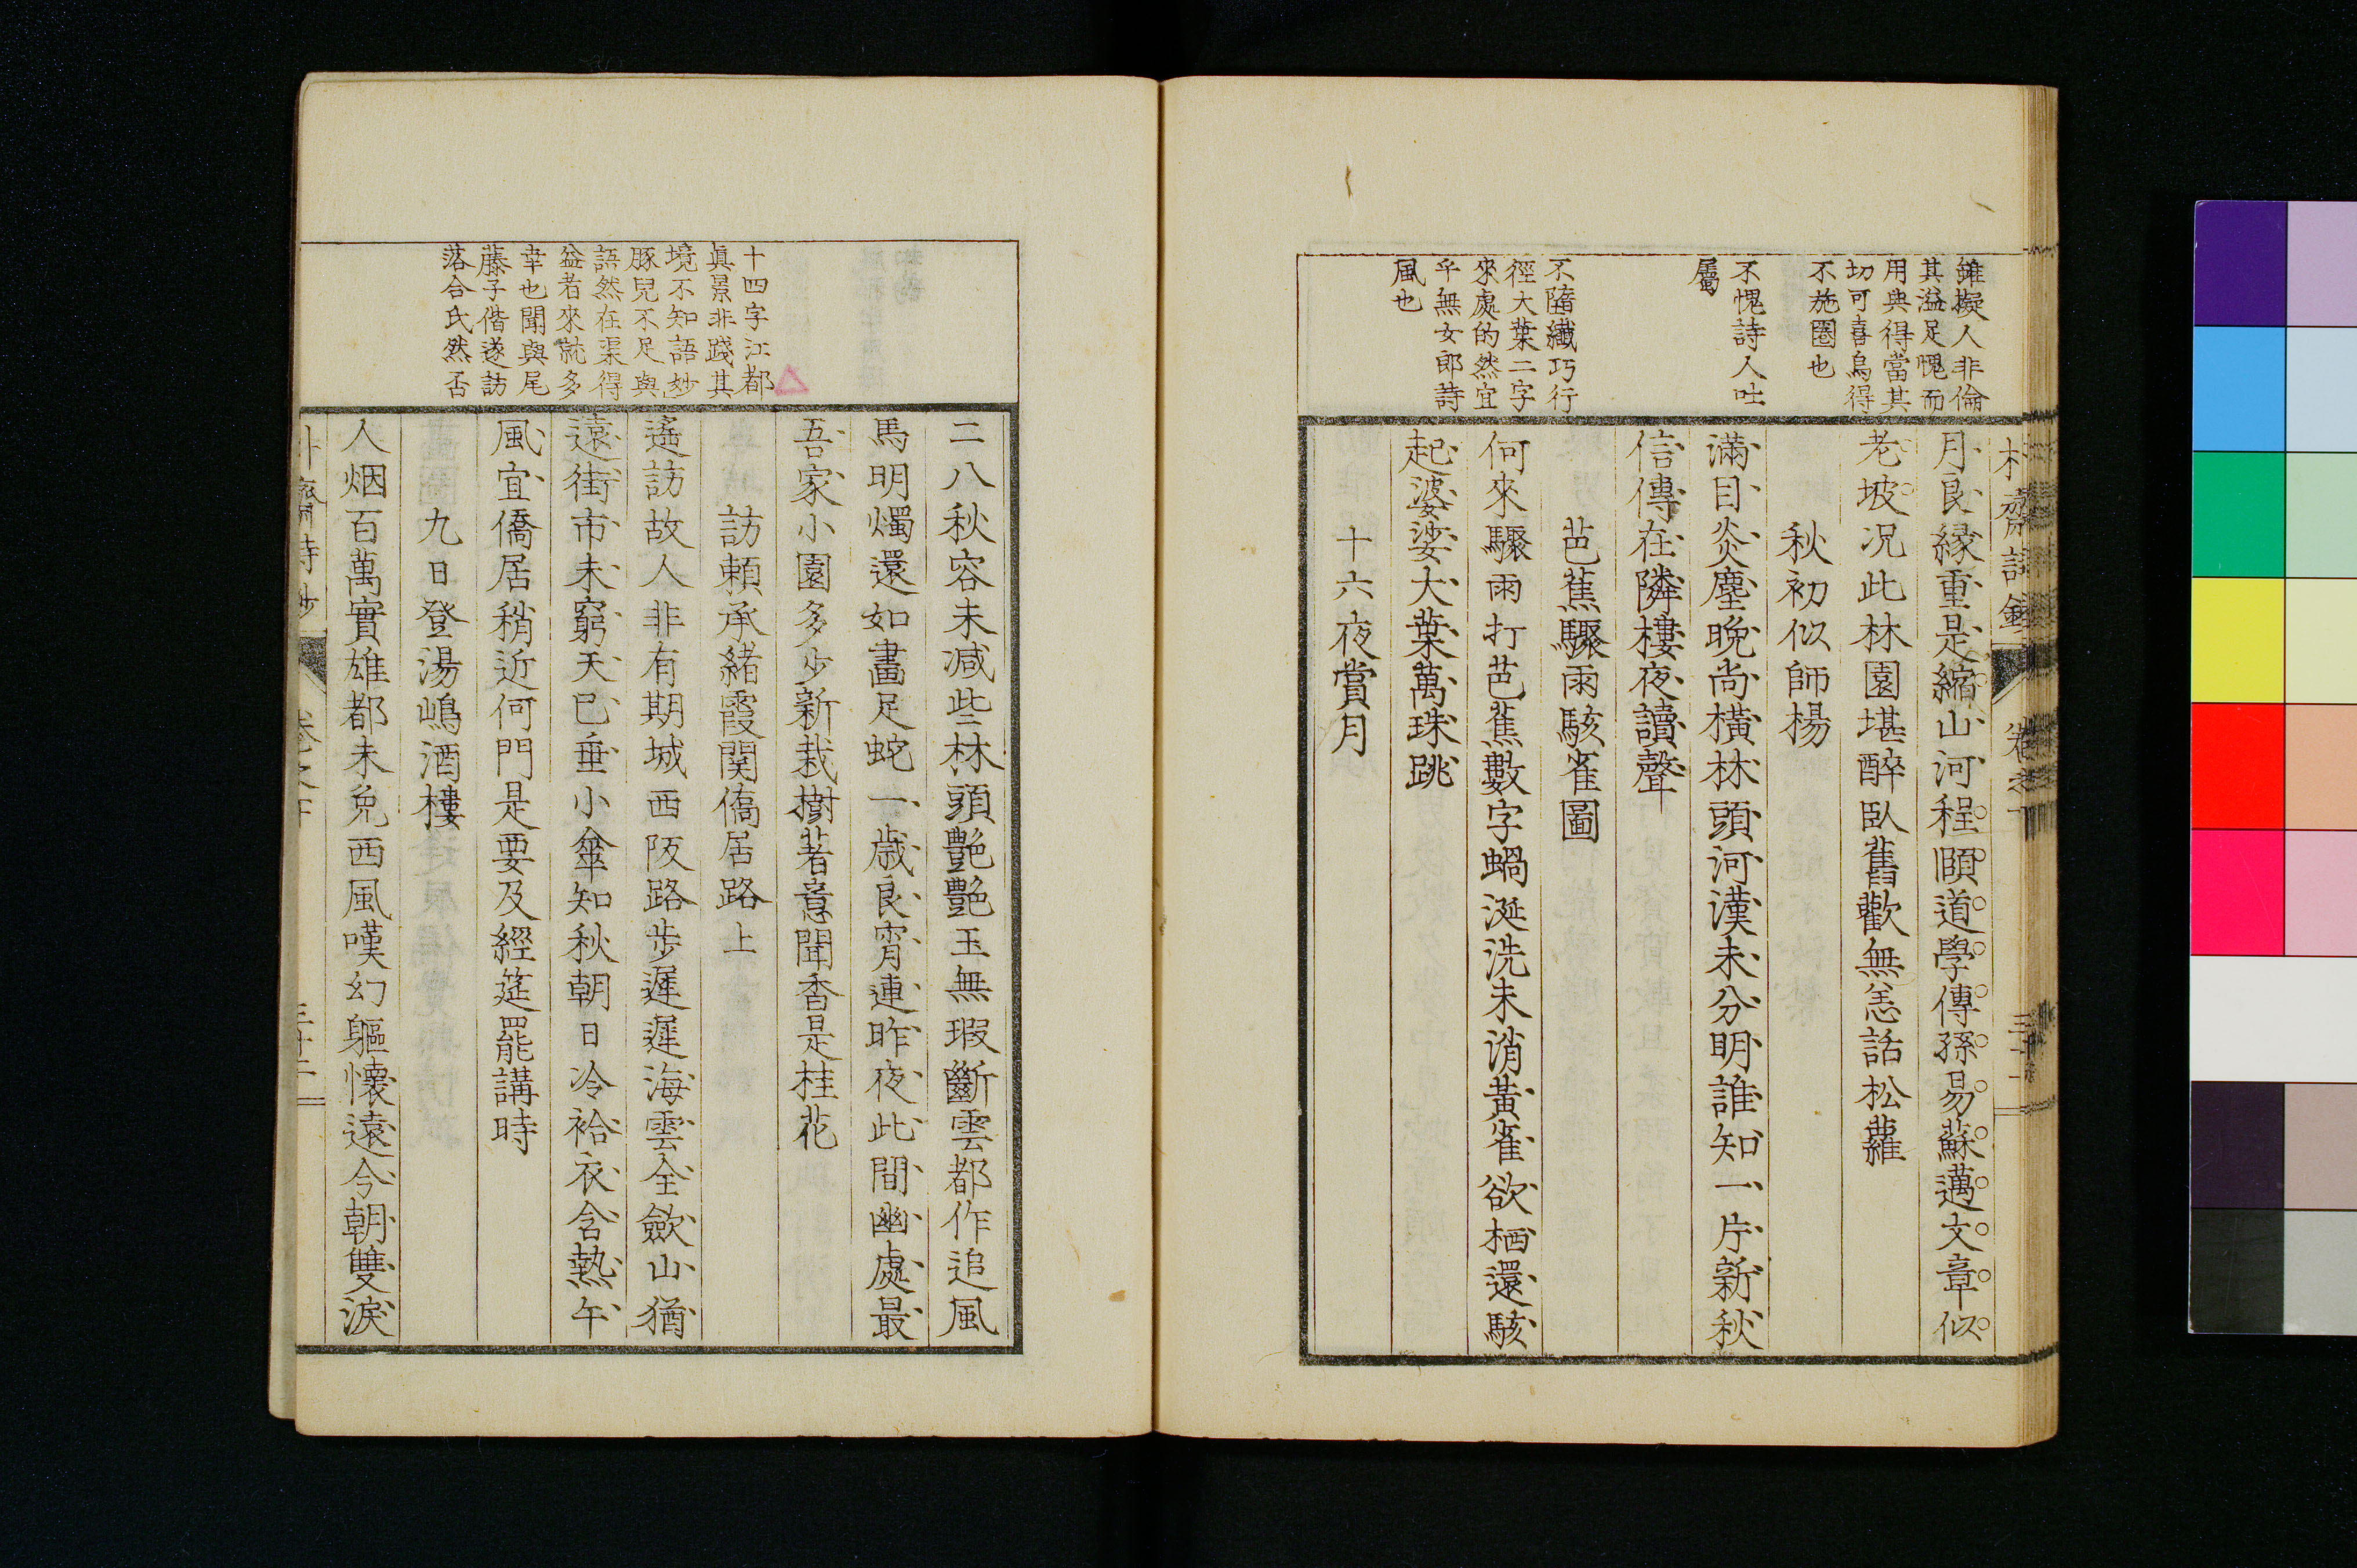 雖擬人非倫
其溢足愧而
用典得當其
切可喜烏得
不施圈也
不愧詩人吐
屬
不墮纖巧行
徑大葉二字
來處的然宜
乎無女郎詩
風也
月良縁重是縮山河程頤道學傳孫易蘇邁文章似
老坡况此林園堪醉臥舊歡無恙話松蘿
秋初似師楊
滿目炎塵晩尚橫林頭河漢未分明誰知一片新秋
信傳在隣樓夜讀聲
芭蕉驟雨駭雀圖
何來驟雨打芭蕉數字蝸涎洗未消黃雀欲栖還駭
起婆娑大葉萬珠跳
十六夜賞月
十四字江都
眞景非踐其
境不知語妙
豚兒不足與
語然在渠得
益者來就多
幸也聞與尾
藤子偕遂訪
落合氏然否
二八秋容未減些林頭艷艷玉無瑕斷雲都作追風
馬明燭還如畵足蛇一歳良宵連昨夜此間幽處最
吾家小園多少新栽樹著意聞香是桂花
訪頼承緒霞関僑居路上
遙訪故人非有期城西阪路歩遲遲海雲全歛山猶
遠街市未窮天已垂小傘知秋朝日冷袷衣含熱午
風宜僑居稍近何門是要及經筵罷講時
九日登湯嶋酒樓
人烟百萬實雄都未免西風嘆幻軀懷遠今朝雙淚